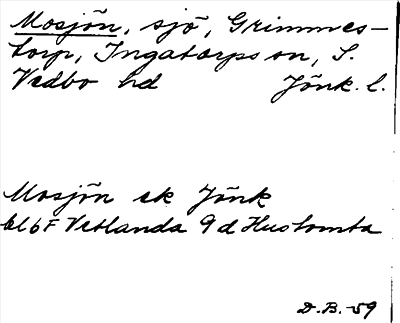 Mosjön, sjö, Grimmes-
torp, Ingatorps sn, S.
Vedbo hd Jönk. l.
Mosjön ek Jönk
bl 6F Vetlanda 9d Hustomta
D.B. -59